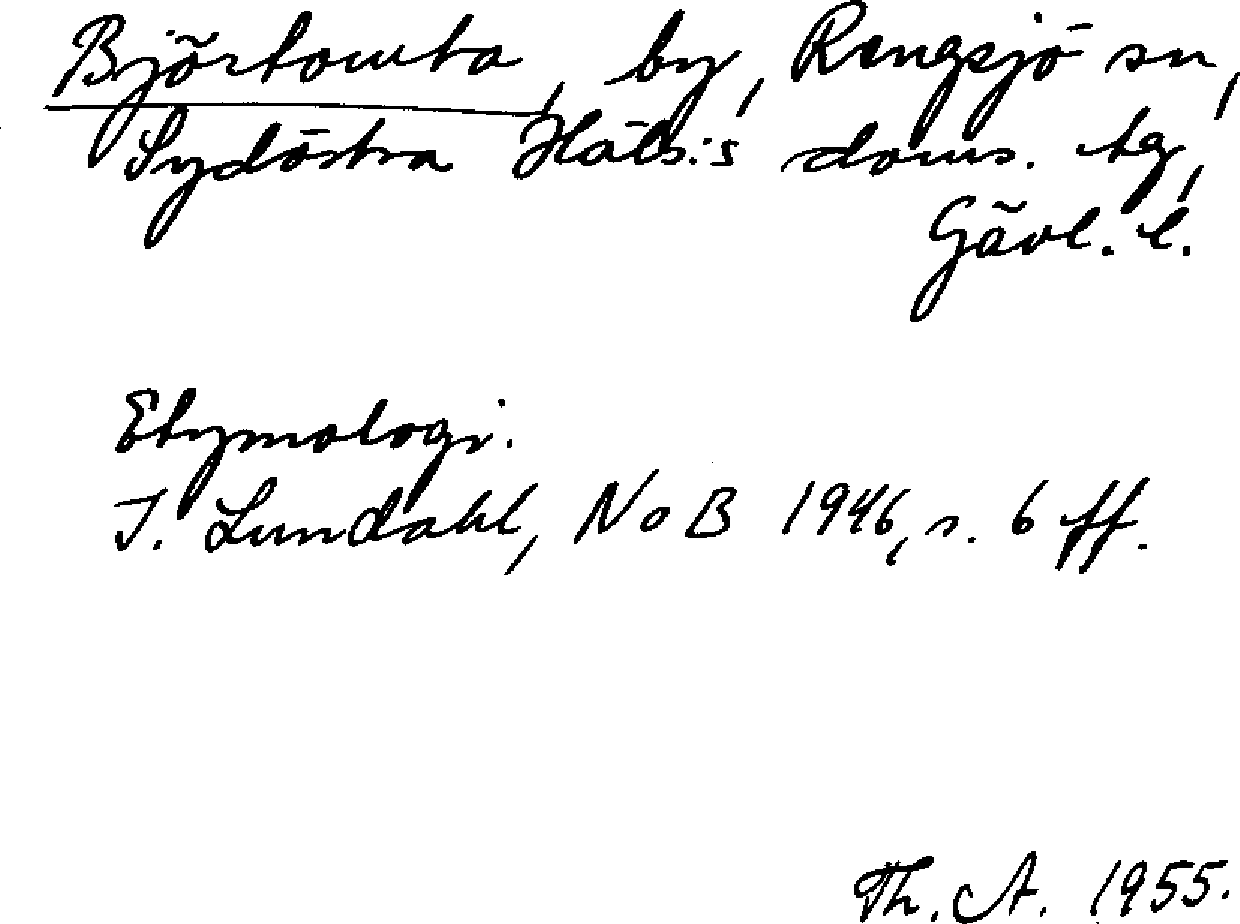 Björtomta, by, Rengsjö sn,
Sydöstra Häls:s doms. tg,
Gävl. l.
Etymologi.
I. Lundahl, NoB 1946, s. 6 ff.
Th. A. 1955.